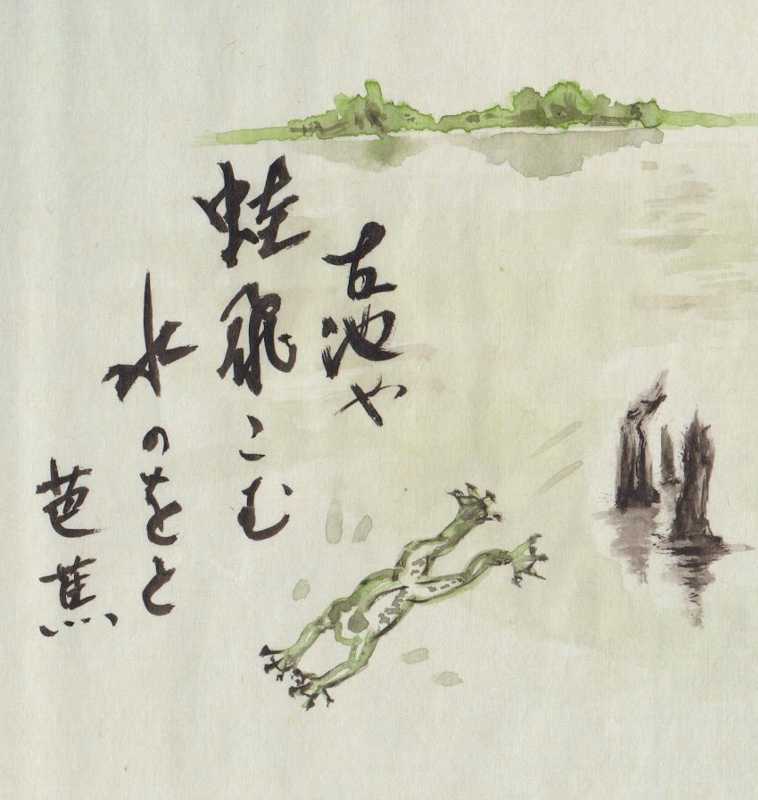 古池や
蛙飛こむ
水のをと
芭蕉